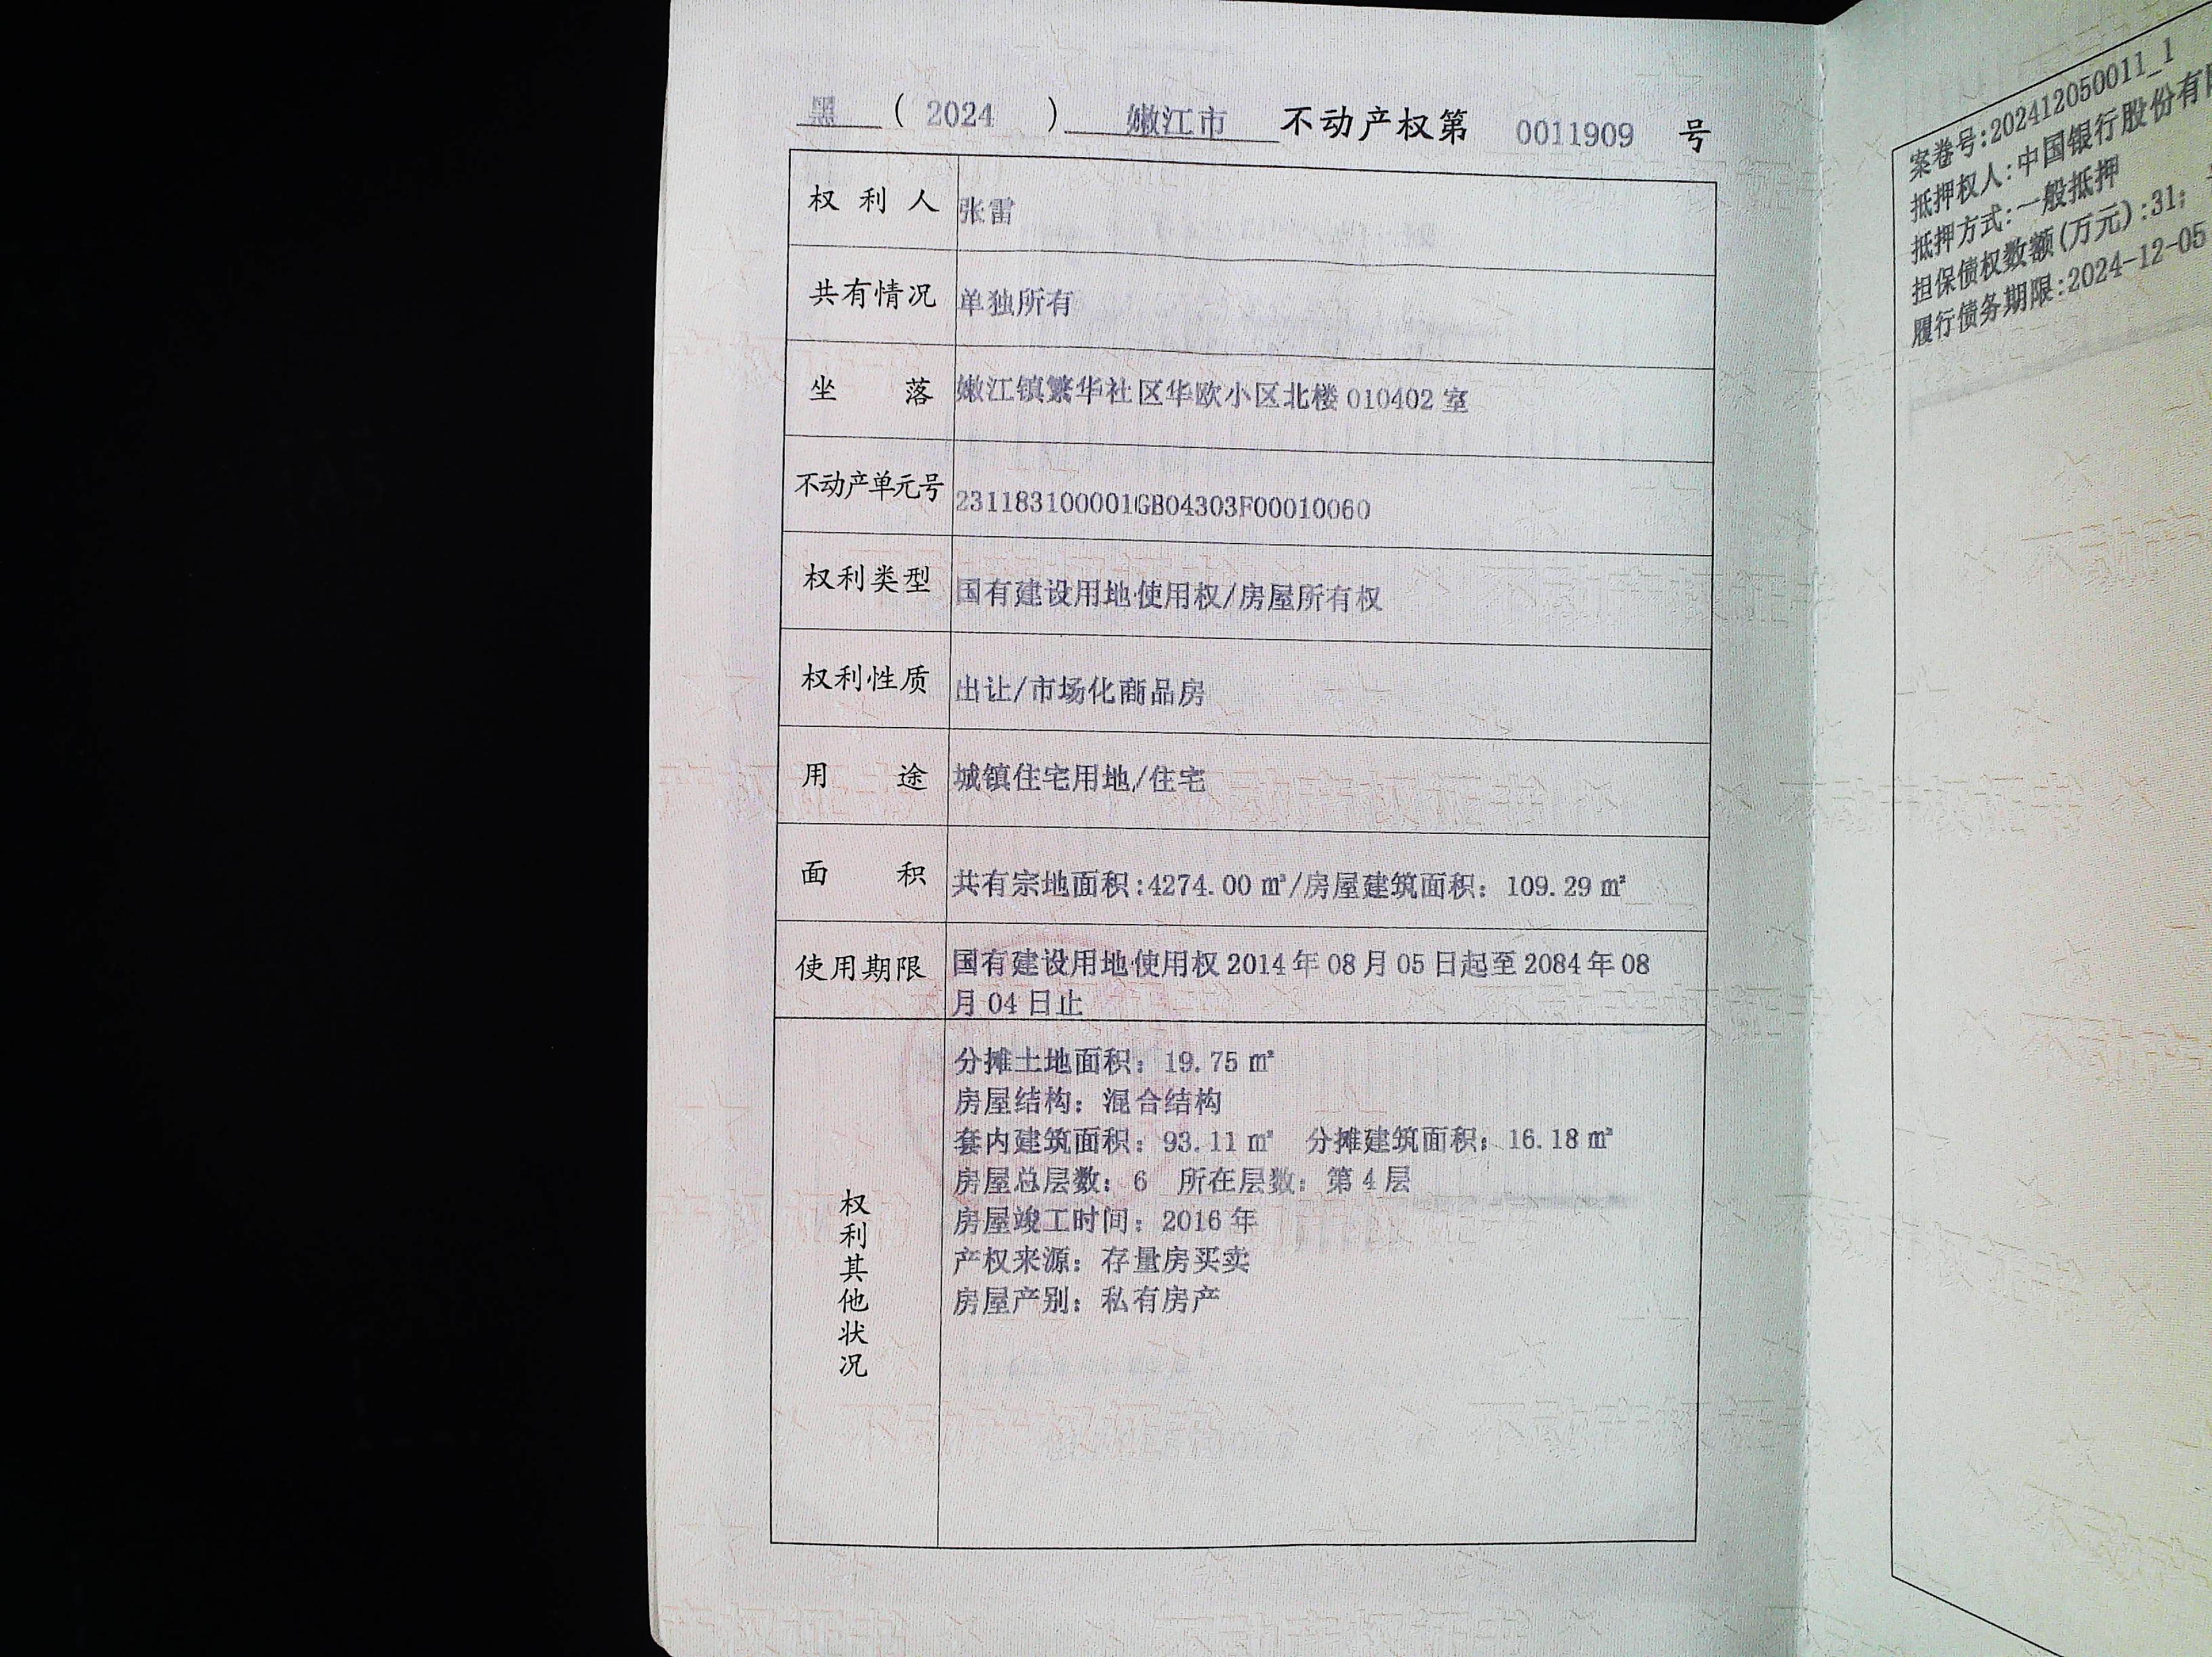 黑 (2024) 嫩江市 不动产权第 0011909 号
权利人 张雷
共有情况 单独所有
坐落 嫩江镇繁华社区华欧小区北楼 010402 室
不动产单元号 231183100001GB04303F00010060
权利类型 国有建设用地使用权/房屋所有权
权利性质 出让/市场化商品房
用途 城镇住宅用地/住宅
面积 共有宗地面积:4274.00 ㎡/房屋建筑面积：109.29 ㎡
使用期限 国有建设用地使用权 2014 年 08 月 05 日起至 2084 年 08
月 04 日止
权利其他状况
分摊土地面积：19.75 ㎡
房屋结构：混合结构
套内建筑面积：93.11 ㎡ 分摊建筑面积：16.18 ㎡
房屋总层数：6 所在层数：第 4 层
房屋竣工时间：2016 年
产权来源：存量房买卖
房屋产别：私有房产
案卷号:202412050011_1
抵押权人:中国银行股份有
抵押方式:一般抵押
担保债权数额(万元):31;
履行债务期限:2024-12-05